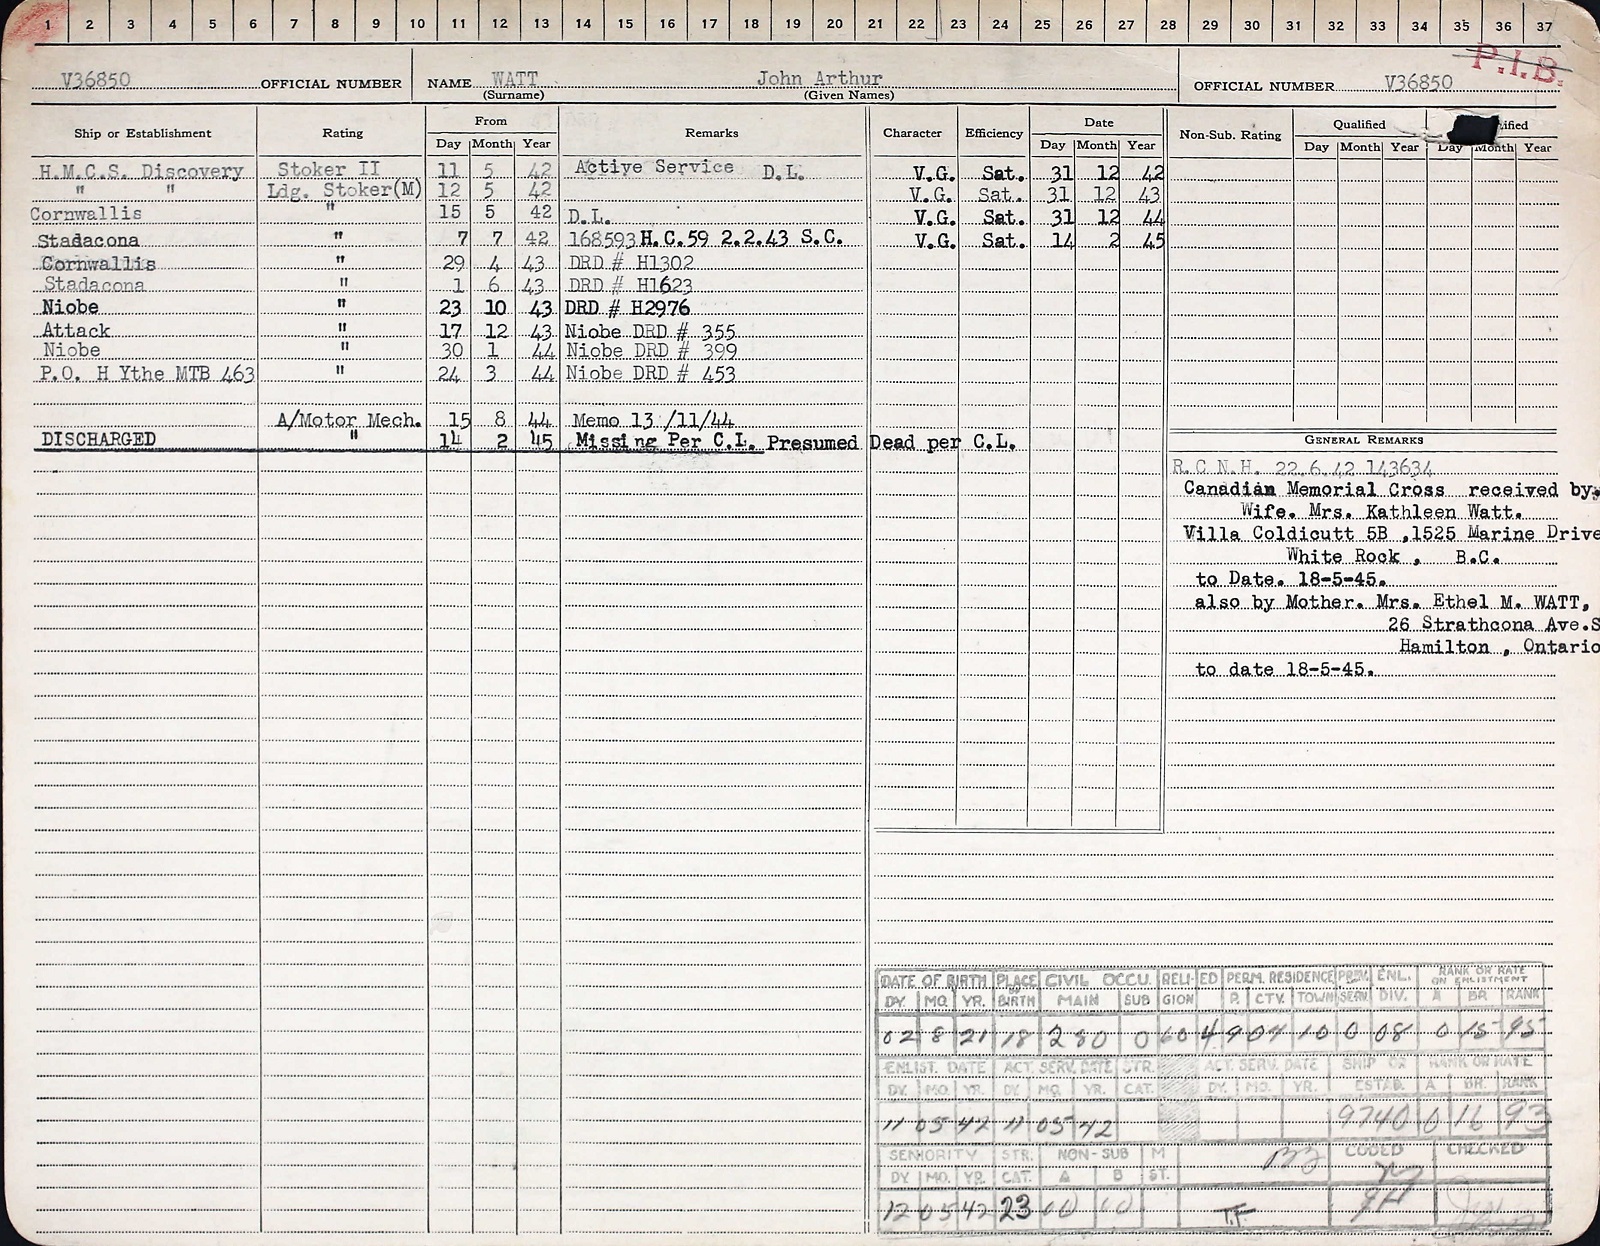 1 2 3 4 5 6 7 8 9 10 11 12 13 14 15 16 17 18 19 20 21 22 23 24 25 26 27 28 29 30 31 32 33 34 35 36 37
P.I.B.
V36850 OFFICIAL NUMBER NAME WATT John Arthur OFFICIAL NUMBER V36850
(Surname) (Given Names)
Ship or Establishment Rating From Remarks Character Efficiency Date Non-Sub. Rating Qualified
Day Month Year Day Month Year Day Month Year Day Month Year
H.M.C.S. Discovery Stoker II 11 5 42 Active Service D.L. V.G. Sat. 31 12 42
" " Ldg. Stoker(M) 12 5 42 V.G. Sat. 31 12 43
Cornwallis " 15 5 42 D.L. V.G. Sat. 31 12 44
Stadacona " 7 7 42 168593 H.C.59 2.2.43 S.C. V.G. Sat. 14 2 45
Cornwallis " 29 4 43 DRD # H1302
Stadacona " 1 6 43 DRD # H1623
Niobe " 23 10 43 DRD # H2976
Attack " 17 12 43 Niobe DRD # 355
Niobe " 30 1 44 Niobe DRD # 399
P.O. H Ythe MTB 463 " 24 3 44 Niobe DRD # 453
A/Motor Mech. 15 8 44 Memo 13 /11/44
DISCHARGED " 14 2 45 Missing Per C.L. Presumed Dead per C.L.
GENERAL REMARKS
R.C.N.H. 22.6.42 143634
Canadian Memorial Cross received by
Wife. Mrs. Kathleen Watt.
Villa Coldicutt 5B ,1525 Marine Drive
White Rock , B.C.
to Date. 18-5-45.
also by Mother. Mrs. Ethel M. WATT,
26 Strathcona Ave.S
Hamilton , Ontario
to date 18-5-45.
DATE OF BIRTH PLACE OF BIRTH CIVIL OCCU. RELIGION ED PERM. RESIDENCE PREV. SERV. ENL. DIV. RANK OR RATE ON ENLISTMENT
DY. MO. YR. MAIN SUB P. CTY. TOWN A BR RANK
02 8 21 18 280 0 60 4 9 04 10 0 08 0 15 95
ENLIST. DATE ACT. SERV. DATE STR. CAT. ACT. SERV. DATE SHIP OR ESTAB. RANK OR RATE
DY. MO. YR. DY. MO. YR. DY. MO. YR. A BR. RANK
11 05 42 11 05 42 9740 0 16 93
SENIORITY STR. CAT. NON-SUB M ST. CODED CHECKED
DY. MO. YR. A B
12 05 42 23 00 00 T.F